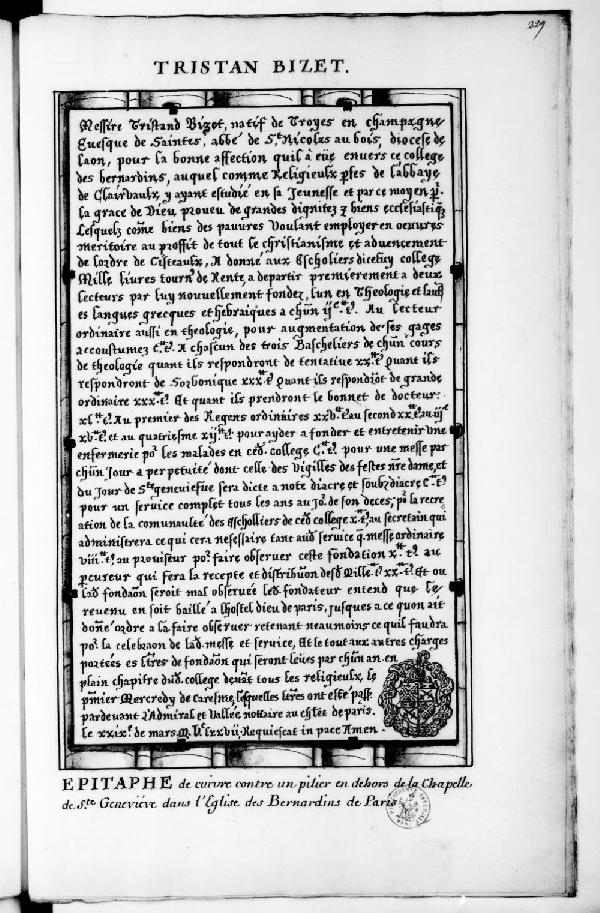 329
TRISTAN BIZET.
Messire Tristand Bizet, natif de Troyes en champagne
Euesque de Saintes, abbé de St. Nicolas au bois, diocese de
laon, pour la bonne affection quil à eüe enuers ce college
des bernardins, auquel comme Religieulx pfes de labbaye
de Clairvaulx, y ayant estudié en sa Jeunesse et par ce moyen pr.
la grace de Dieu, proueu de grandes dignitez & biens ecclesiastiqz
Lesquelz come biens des pauures Voulant employer en oeuures
meritoire au proffit de tout le christianisme et aduencement
de lordre de Cisteaulx, A donné aux Escholiers dicelluy college
Mille liures tourn. de Rente, a departir premierement a deux
lecteurs par luy nouuellement fondez, lun en Theologie et lautre
es langues grecques et hebraiques a chun Au lecteur
ordinaire aussi en theologie, pour augmentation de ses gages
accoustumez A chascun des trois Bascheliers de chun cours
de theologie quant ils respondront de tentatiue xx. Quant ils
respondront de Sorbonique xxx. Quant ils respondrot de grande
ordinaire xxx. Et quant ils prendront le bonnet de docteur.
xl. Au premier des Regens ordinaires xxv. au second xx. au
xv. et au quatriesme pour ayder a fonder et entretenir vne
enfermerie po. les malades en ced. college pour une messe par
chun Jour a perpetuité dont celle des Vigilles des festes nre dame, et
du Jour de Ste. geneuiefue sera dicte a note diacre et soubzdiacre
pour un seruice complet tous les ans au Jo. de son deces, po. la recre
ation de la comunaulté des Escholliers de ced. college x. au secretain qui
administrera ce qui cera nesessaire tant aud. seruice q. messe ordinaire
viii. au prouiseur po. faire obseruer ceste fondation x. au
pcureur qui fera la recepte et distribuon desd. Mille xx. Et ou
lad. fondaon seroit mal obseruée led. fondateur entend que le
reuenu en soit baillé a lhostel dieu de paris, jusques a ce quon ait
doné ordre a la faire obseruer retenant neaumoins ce quil faudra
po. la celebraon de lad. messe et seruice, Et le tout aux autres charges
portées es ltres de fondaon qui seront leües par chun an. en
plain chapitre dud. college deuat tous les religieulx, le
pmier Mercredy de Caresme, lesquelles ltres ont esté pass.
pardeuant L'Admiral et Vallée nottaire au chlet de paris.
Le xxix. de mars M. Vc. lxxvii. Requiescat in pace Amen.
EPITAPHE de cuivre contre un pilier en dehors de la Chapelle
de Ste. Geneviéve dans l'Eglise des Bernardins de Paris